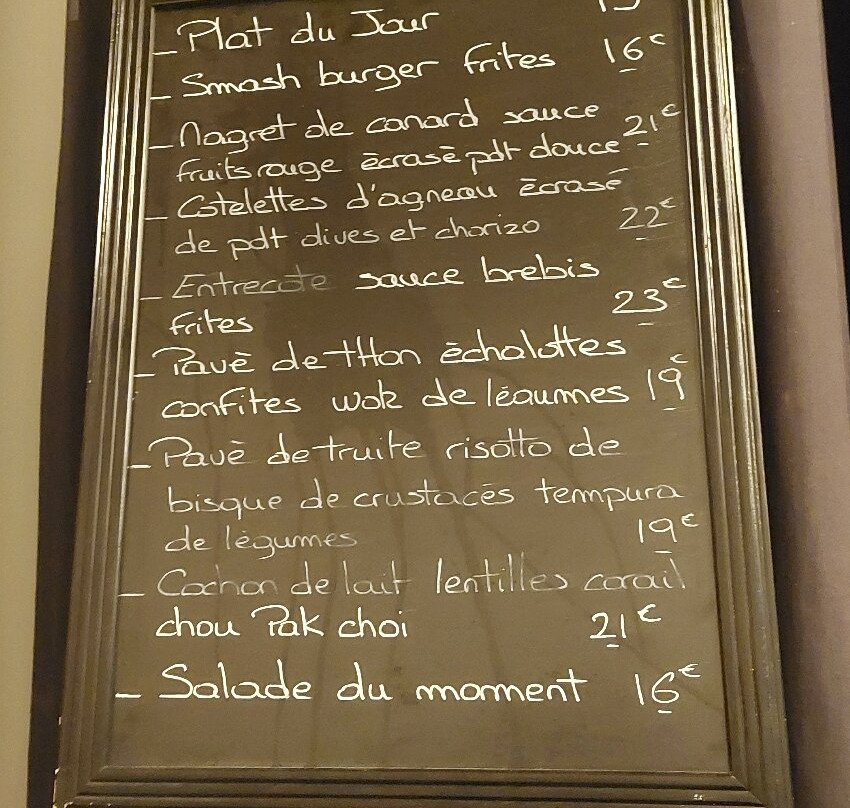 - Plat du Jour
- Smash burger frites 16€
- Magret de canard sauce
fruits rouge ècrasè pdt douce 21€
- Cotelettes d'agneau ècrasé
de pdt olives et chorizo 22€
- Entrecote sauce brebis
frites 23€
- Pavè de tHon èchalottes
confites wok de légumes 19€
- Pavè de truite risotto de
bisque de crustacés tempura
de lègumes 19€
- Cochon de lait lentilles corail
chou Pak choi 21€
- Salade du moment 16€